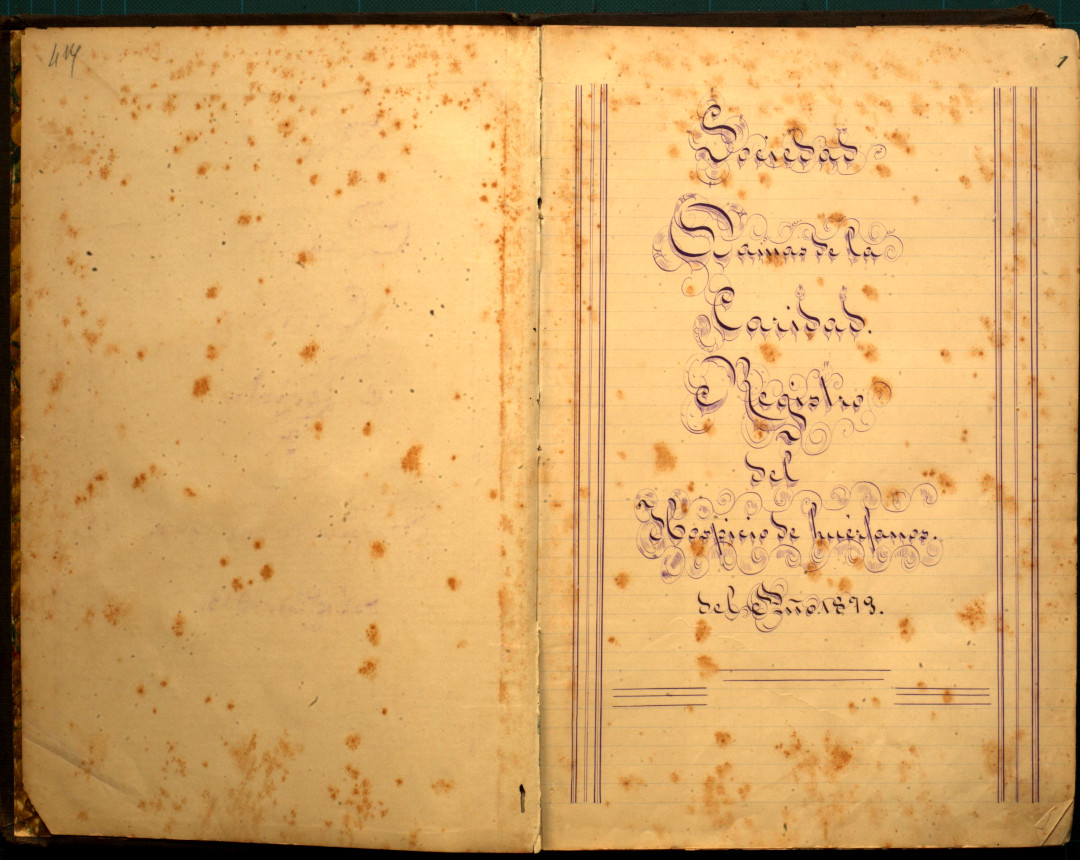 414
1
Sociedad
Damas de la
Caridad.
Registro
del
Hospicio de huérfanos.
del Año 1893.